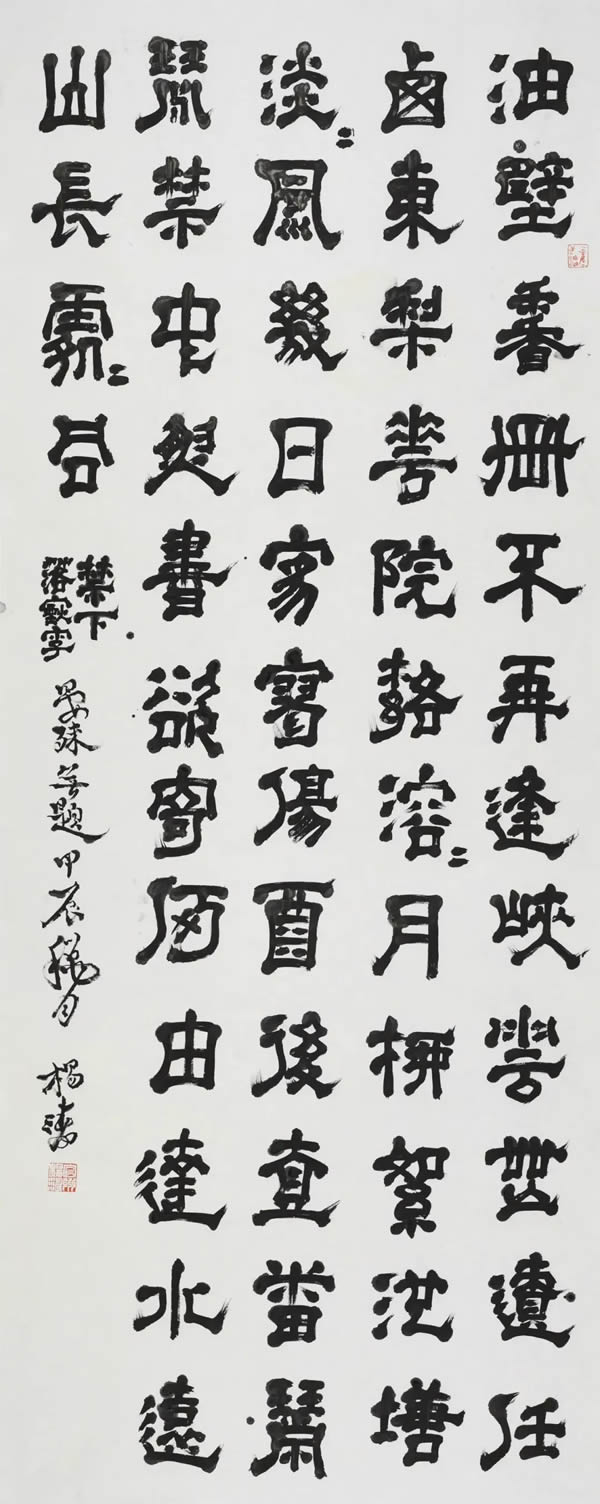 油壁香車不再逢峽雲無迹任
西東梨花院落溶〻月柳絮池塘
淡〻風幾日寂寥傷酒後壹番蕭
索禁中魚書欲寄何由達水遠
山長處〻同
禁下
落煙字
晏殊無題甲辰穐月 楊濤